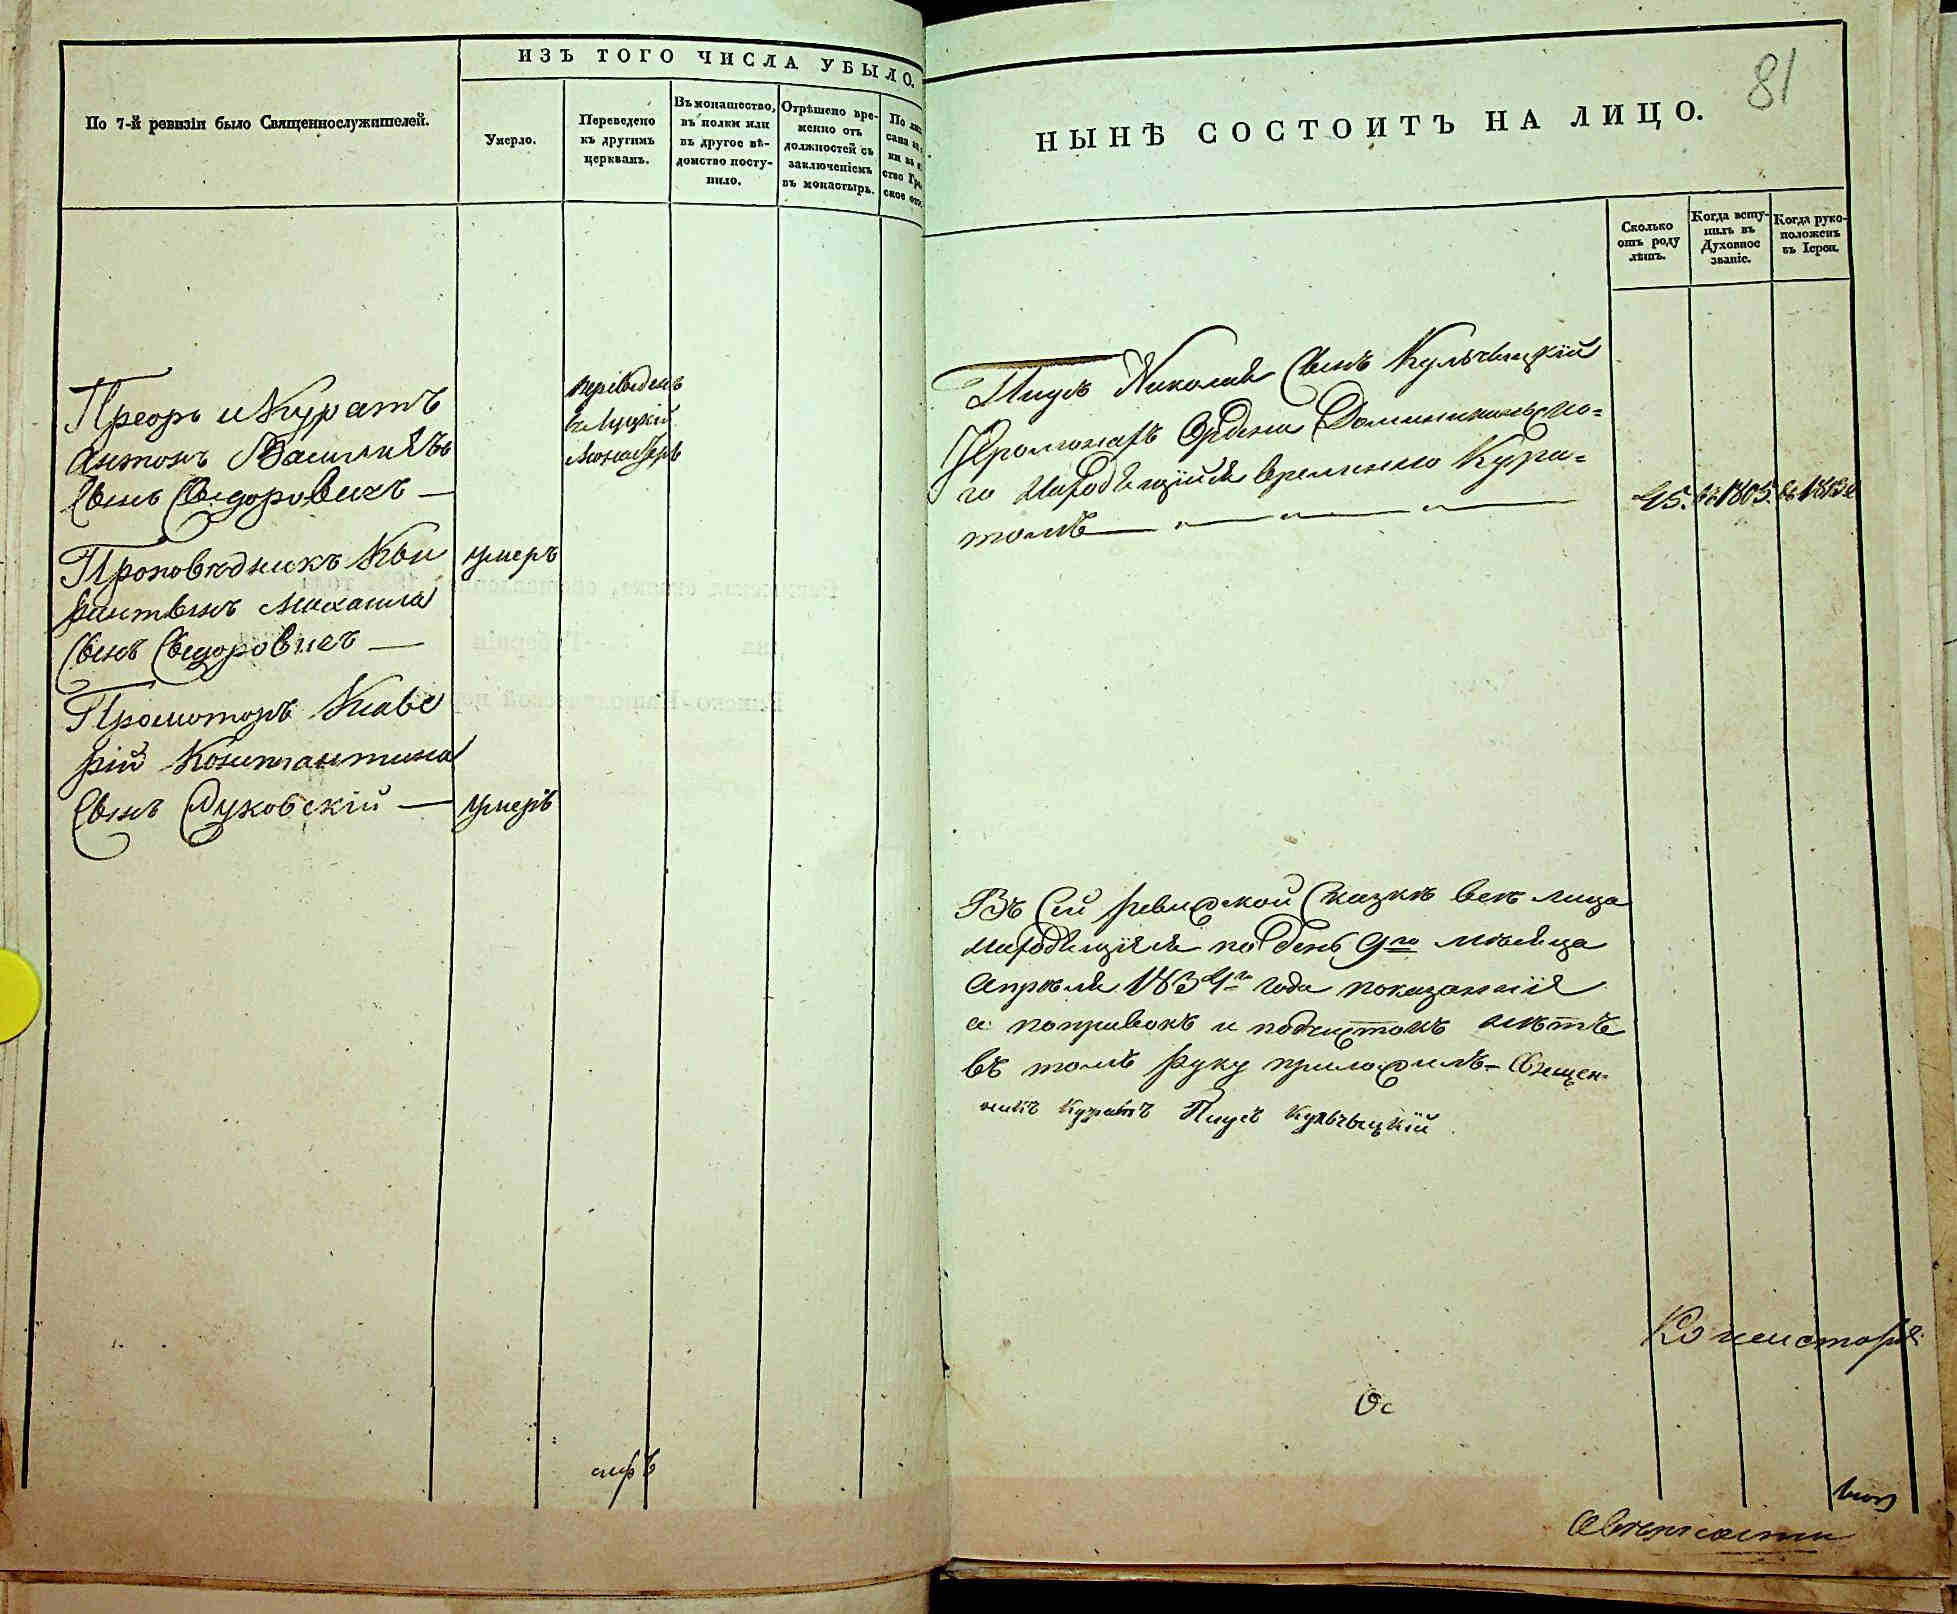 ИЗЪ ТОГО ЧИСЛА УБЫЛО.
По 7-й ревизіи было Священнослужителей.
Умерло.
Переведено
къ другимъ
церквамъ.
Въ монашество,
въ полки или
въ другое вѣ-
домство посту-
пило.
Отрѣшено вре-
менно отъ
должностей съ
заключеніемъ
въ монастырь.
По
ство
ское
Преоръ и Куратъ
Антонъ Василіевъ
Сынъ Сидоровичъ —
переведенъ
въ Луцкій
Монастырь
Проповедникъ Кви
рынтынъ Михаила
Сынъ Сидоровичъ —
умеръ
Промоторъ Ксаве
рій Константина
Сынъ Луковскій —
умеръ
81
НЫНѢ СОСТОИТЪ НА ЛИЦО.
Сколько
отъ роду
лѣтъ.
Когда всту-
пилъ въ
Духовное
званіе.
Когда руко-
положенъ
въ Іереи.
Піусъ Николая Сынъ Кульчыцкій
Іеромонахъ Ордена Доминиканско-
го находящійся временно Кура-
томъ — „ — „ — „ —
45. въ 1805.
Въ сей ревизской Сказкѣ всѣ лица
находящіяся по день 9го мѣсяца
Апрѣля 1834го года показанніе
а поправокъ и подчистокъ нѣтъ
въ томъ руку приложилъ – Священ-
никъ Куратъ Піусъ Кульчыцкій